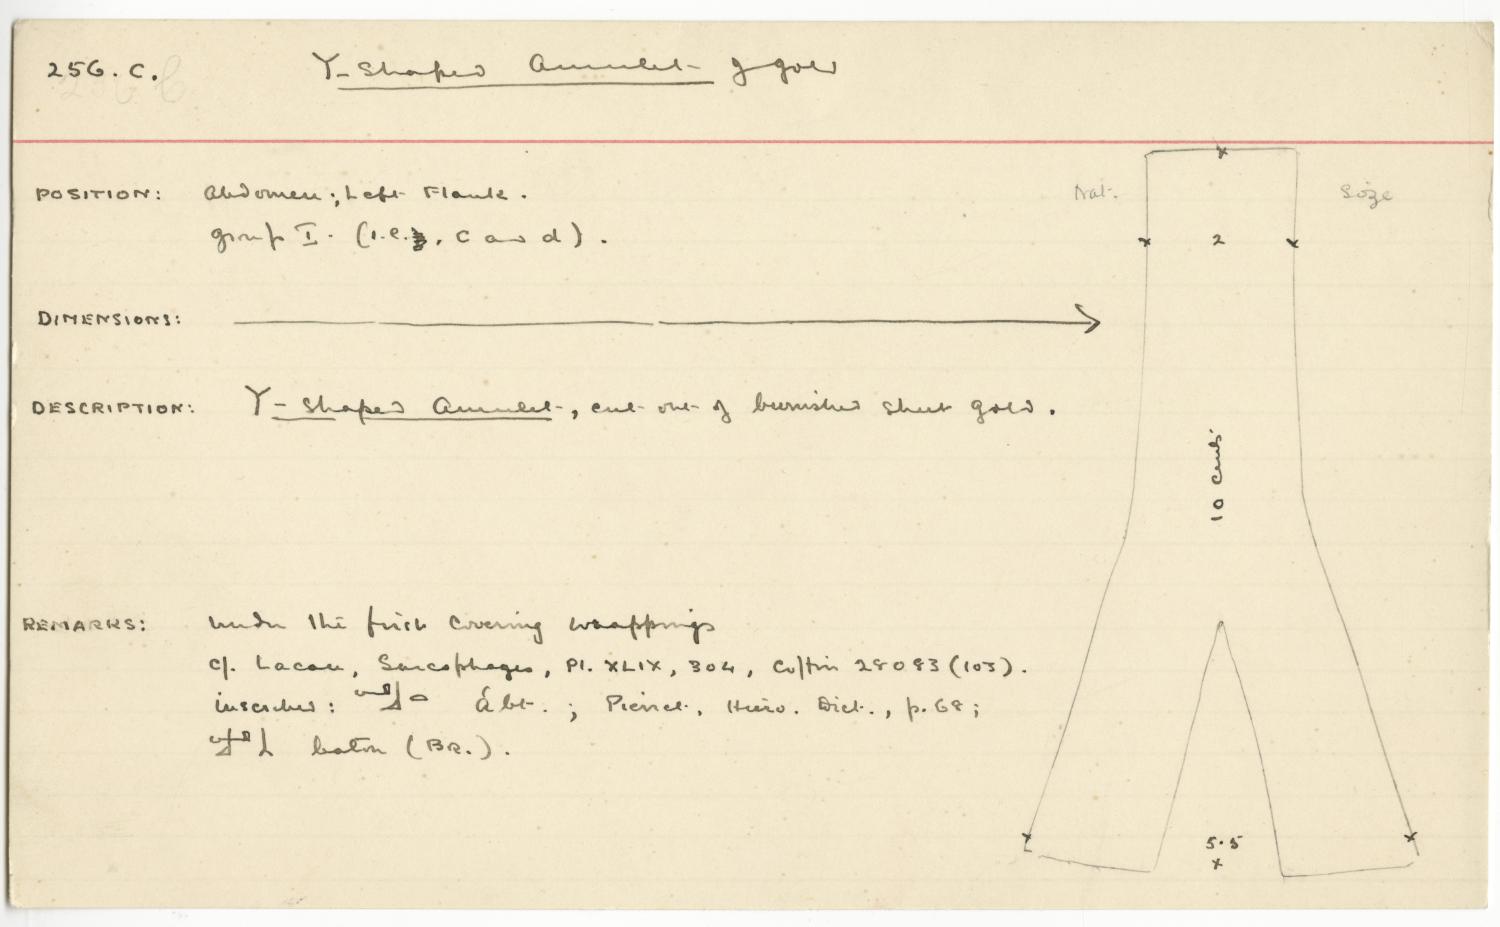 256. C. Y-Shaped Amulet of gold
POSITION: Abdomen; Left Flank.
Nat. Size
group I. (i.e. , c and d).
2
DIMENSIONS:
DESCRIPTION: Y-Shaped Amulet, cut out of burnished sheet gold.
10 cents.
REMARKS: under the first covering wrappings
cf. Lacau, Sarcophages, Pl. XLIX, 304, Coffin 28083 (103).
inscribed: Ábt. ; Pierret, Hiero. Dict., p. 68;
baton (BR.).
5.5